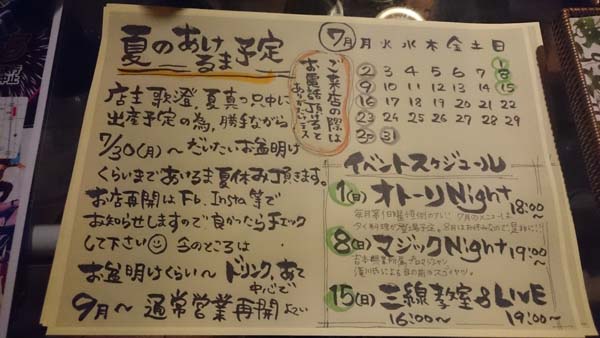 夏のあけ
るま予定
店主歌澄、夏真っ只中に
出産予定の為、勝手ながら
7/30(月)〜だいたいお盆明け
くらいまであけるま夏休み頂きます。
お店再開はFb、Insta等で
お知らせしますので良かったらチェック
して下さい 今のところは
お盆明けくらい〜ドリンク、あて
中心で
9月〜通常営業再開
ご来店の際は
お電話頂けると
ありがたいデス
7月 月 火 水 木 金 土 日
1
2 3 4 5 6 7 8
9 10 11 12 13 14 15
16 17 18 19 20 21 22
23 24 25 26 27 28 29
30 31
イベントスケジュール
1(日) オトーリNight
18:00〜
8(日) マジックNight
19:00〜
15(日) 三線教室&LIVE
16:00〜 19:00〜